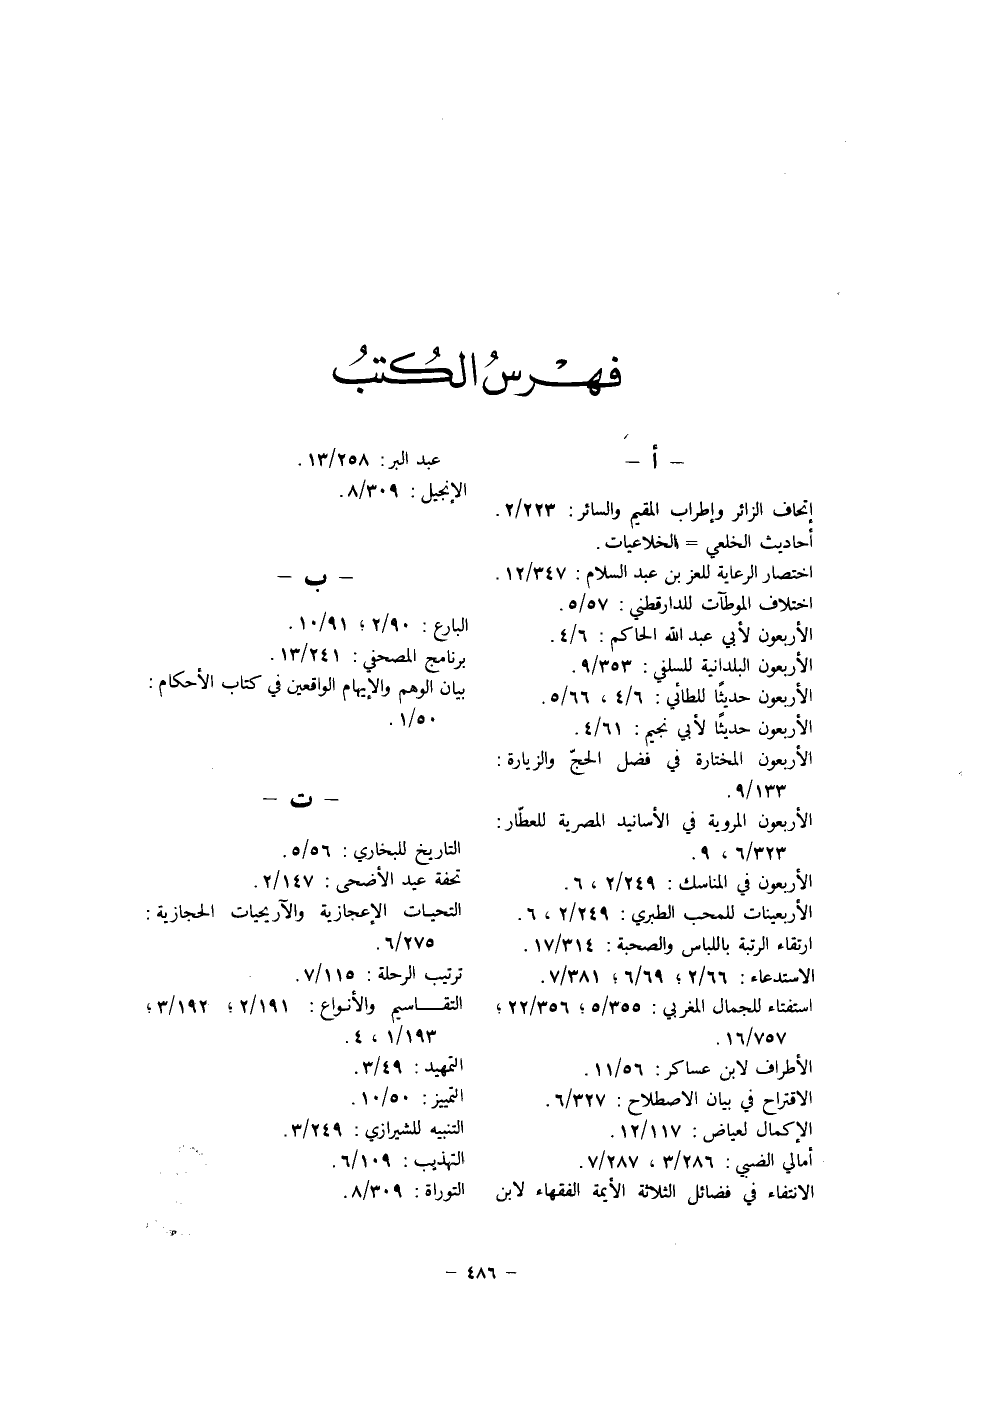 فهرسُ الكُتبُ
– أ –
إتحاف الزائر وإطراب المقيم والسائر : ٢/٢٢٣ .
أحاديث الخلعي = الخلاعيات .
اختصار الرعاية للعز بن عبد السلام : ١٢/٣٤٧ .
اختلاف الموطآت للدارقطني : ٥/٥٧ .
الأربعون لأبي عبد الله الحاكم : ٤/٦ .
الأربعون البلدانية للسلفي : ٩/٣٥٣ .
الأربعون حديثًا للطائي : ٤/٦ ، ٥/٦٦ .
الأربعون حديثًا لأبي نجيم : ٤/٦١ .
الأربعون المختارة في فضل الحجّ والزيارة :
٩/١٣٣ .
الأربعون المروية في الأسانيد المصرية للعطّار :
٦/٣٢٣ ، ٩ .
الأربعون في المناسك : ٢/٢٤٩ ، ٦ .
الأربعينات للمحب الطبري : ٢/٢٤٩ ، ٦ .
ارتقاء الرتبة باللباس والصحبة : ١٧/٣١٤ .
الاستدعاء : ٢/٦٦ ؛ ٦/٦٩ ؛ ٧/٣٨١ .
استفتاء للجمال المغربي : ٥/٣٥٥ ؛ ٢٢/٣٥٦ ؛
١٦/٧٥٧ .
الأطراف لابن عساكر : ١١/٥٦ .
الاقتراح في بيان الاصطلاح : ٦/٣٢٧ .
الإكمال لعياض : ١٢/١١٧ .
أمالي الضبي : ٣/٢٨٦ ، ٧/٢٨٧ .
الانتفاء في فضائل الثلاثة الأيمة الفقهاء لابن
عبد البر : ١٣/٢٥٨ .
الإنجيل : ٨/٣٠٩ .
– ب –
البارع : ٢/٩٠ ؛ ١٠/٩١ .
برنامج المصحفي : ١٣/٢٤١ .
بيان الوهم والإيهام الواقعين في كتاب الأحكام :
١/٥٠ .
– ت –
التاريخ للبخاري : ٥/٥٦ .
تحفة عيد الأضحى : ٢/١٤٧ .
التحيات الإعجازية والآريحيات الحجازية :
٦/٢٧٥ .
ترتيب الرحلة : ٧/١١٥ .
التقاسيم والأنواع : ٢/١٩١ ؛ ٣/١٩٢ ؛
١/١٩٣ ، ٤ .
التمهيد : ٣/٤٩ .
التمييز : ١٠/٥٠ .
التنبيه للشيرازي : ٣/٢٤٩ .
التهذيب : ٦/١٠٩ .
التوراة : ٨/٣٠٩ .
– ٤٨٦ –